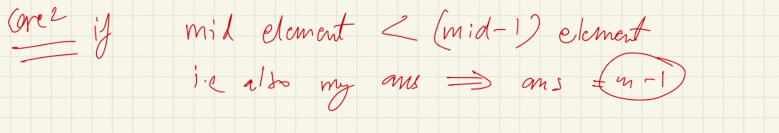 Case 2 if mid element < (mid-1) element
i.e also my ans ⇒ ans = m-1